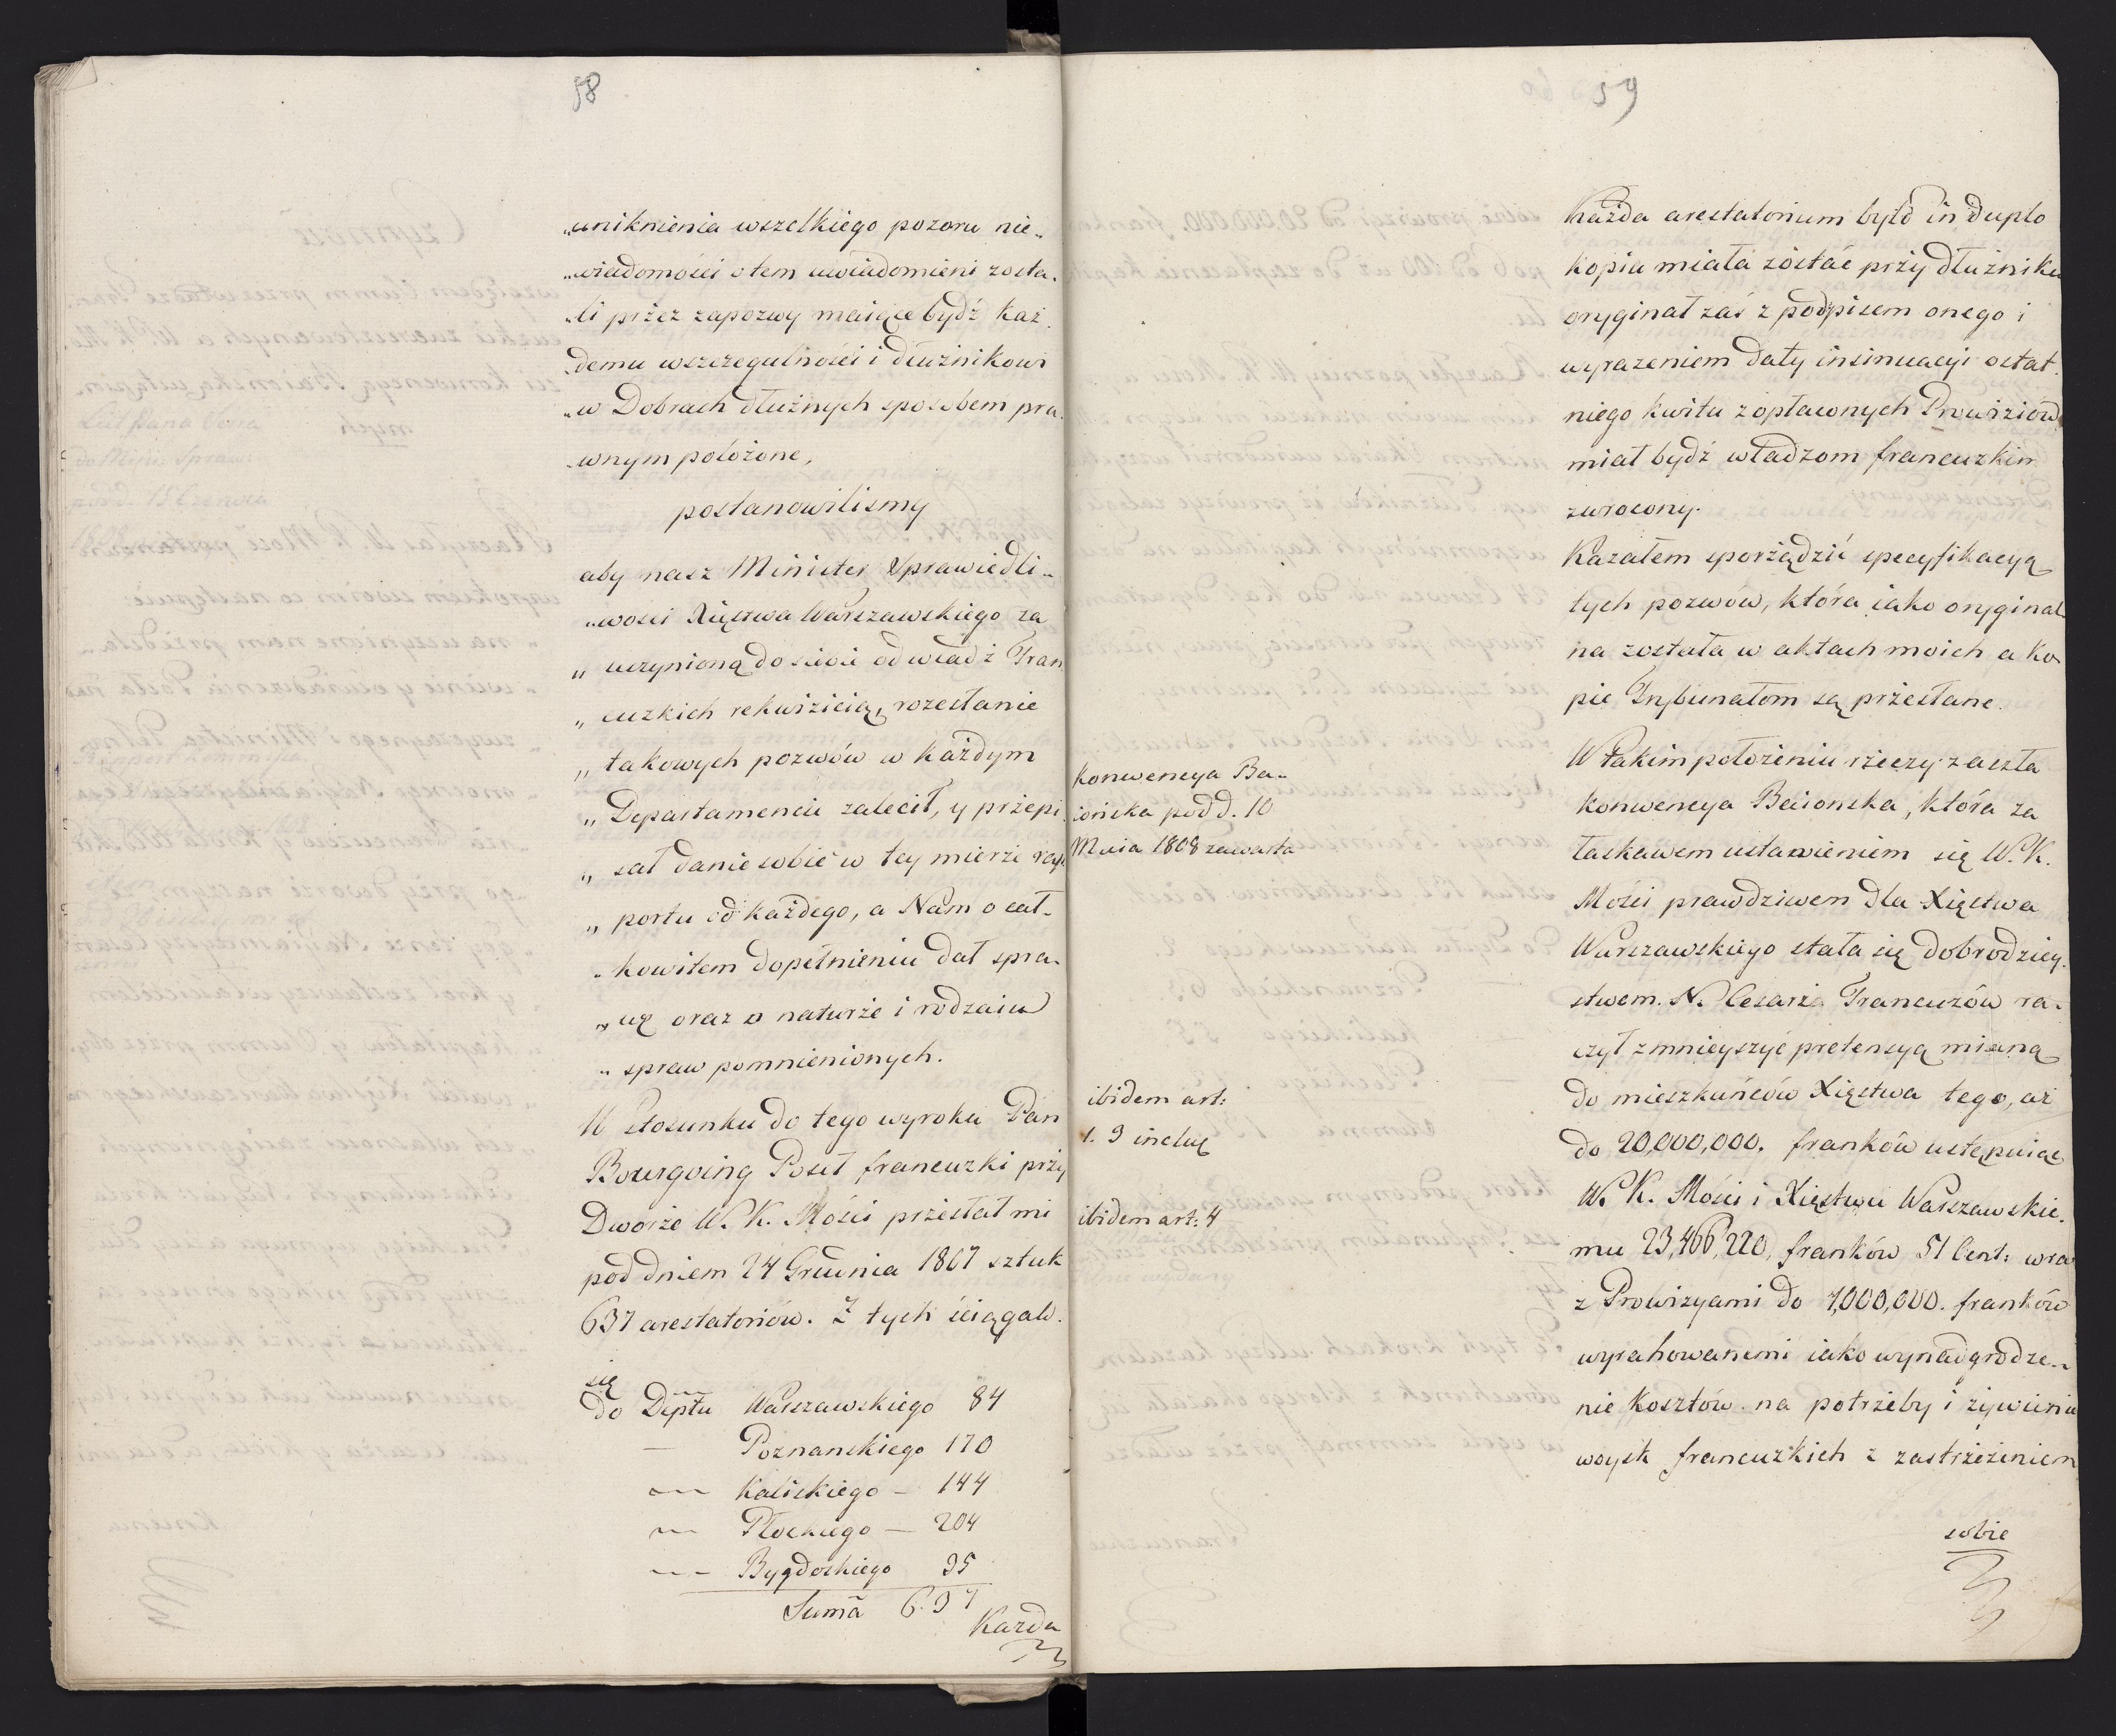 58
„uniknienia wszelkiego pozoru nie„
„wiadomości o tem uwiadomieni zosta.
„li przez zapozwy maiące bydź każ.
„demu wszczegulności i dłużnikowi
„w Dobrach dłużnych sposobem pra.
„wnym położone,
postanowilismy
aby nasz Minister Sprawiedli„
„wości Xięstwa Warszawskiego za
„ uczynioną do siebie od władz Fran
„ cuzkich rekwizicią, rozesłanie
„ takowych pozwów w każdym
„ Departamencie zalecił, y przepi
„ sał danie sobie w tey mierze rap
„ portu od każdego, a Nam o cał„
„ kowitem dopełnieniu dał spra„
„ wę oraz o naturze i rodzaiu
„ spraw pomnienionych.
W stosunku do tego wyroku Pan
Bourgoing Poseł francuzki przy
Dworze W. K. Mości przesłał mi
pod dniem 24 Grudnia 1807 sztuk
637 arestatoriów. Z tych ściągało.
się
do Děptu Warszawskiego 84
— Poznanskiego 170
— Kaliskiego — 144
— Płockiego — 204
— Bygdoskiego 35
Sumã 637
Każda
59
Każda arestatorium było in duplo
kopia miała zostać przy dłużniku
oryginał zaś z podpisem onego i
wyrazeniem daty insinuacyi ostat.
niego kwitu z opłaconych Prowiziów
miał bydź władzom francuzkim
zwrocony.
Kazałem sporządzić specyfikacyą
tych pozwow, która iako oryginal
na została w aktach moich a ko
pie Trybunałom są przesłane.
W takim położeniu rzeczy zaszła
konwencya Baionska, która za
łaskawem ustawieniem się W. K.
Mości prawdziwem dla Xięstwa
Warszawskiego stała się dobrodziey.
stwem. N. Cesarz Francuzów ra.
czył zmnieyszyć pretensyą mianą
do mieszkańców Xięstwa tego, aż
do 20,000,000. franków ustępuiąc
W. K. Mości i Xięstwu Warszawskie.
mu 23,466,220, franków 51 Cent: wraz
z Prowizyami do 4,000,000. franków
wyrahowanemi iako wynadgrodze„
nie kosztów na potrzeby i żywienie
woysk francuzkich z zastrzeżeniem
sobie
Konwencya Ba„
ionska pod d. 10
Maia 1808 zawarta
ibidem art:
1. 3 inclus
ibidem art: 4